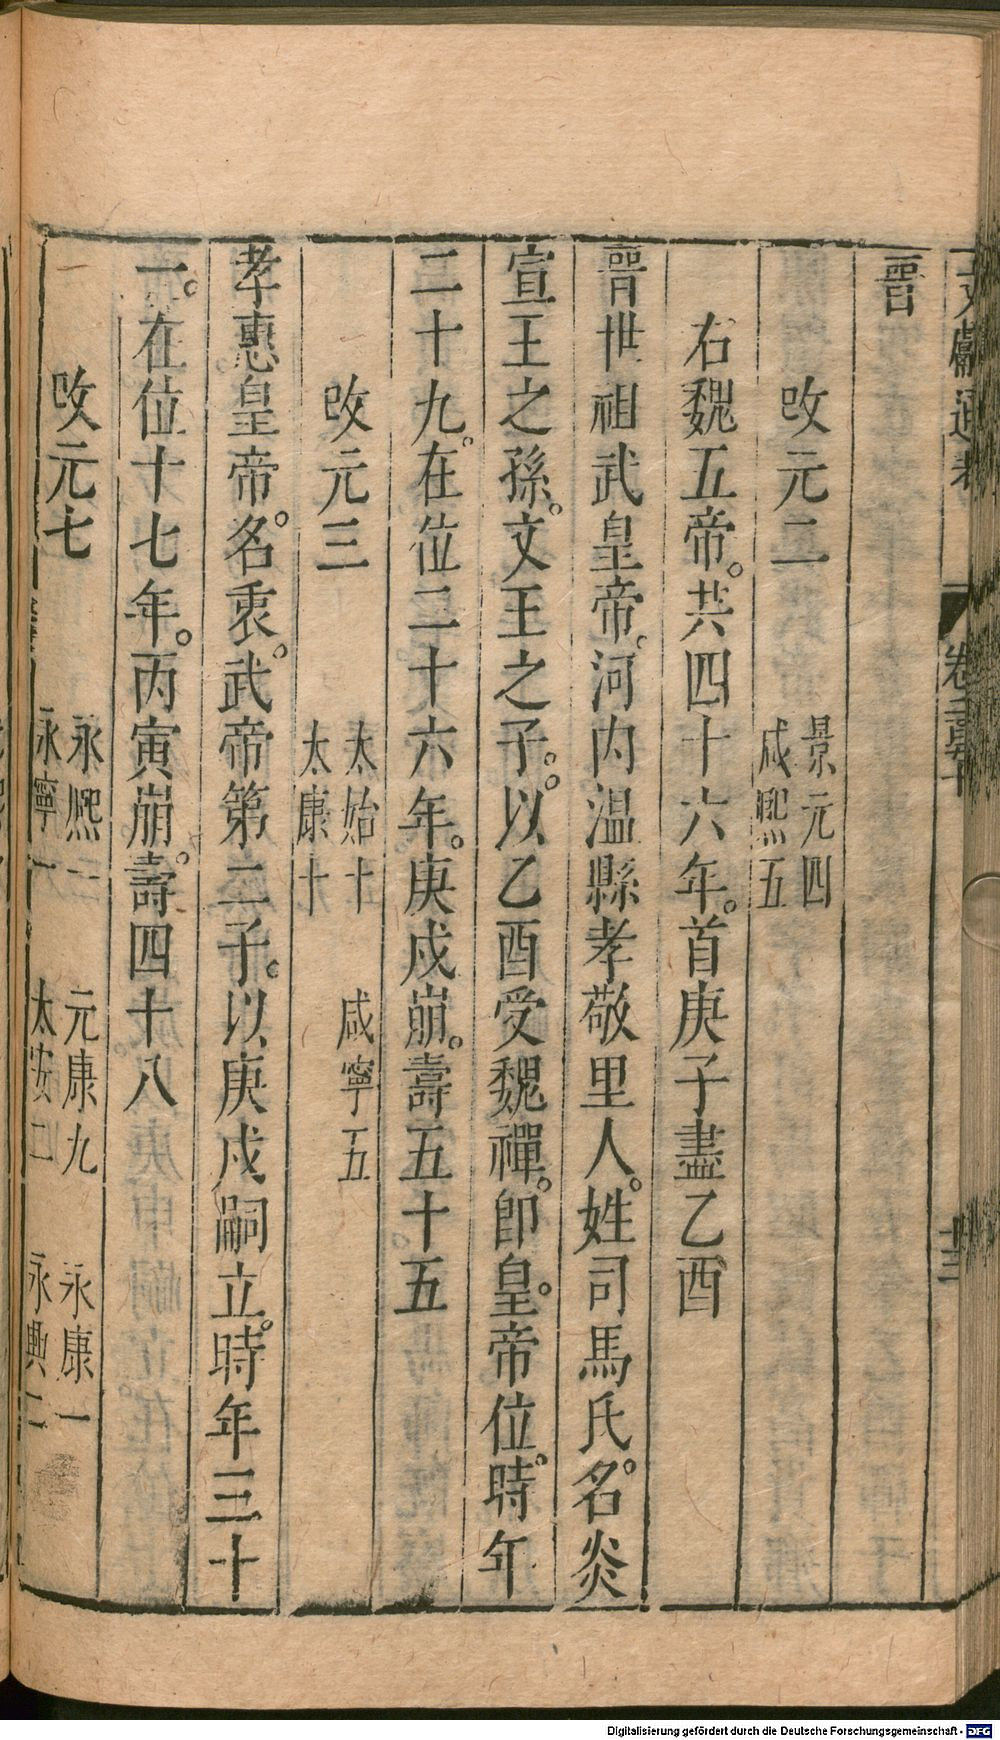 文獻通考 卷二百五十 十三
晉
改元二 景元四 咸熙五
右魏五帝。共四十六年。首庚子盡乙酉
晉世祖武皇帝。河内温縣孝敬里人。姓司馬氏。名炎
宣王之孫。文王之子。以乙酉受魏禪。卽皇帝位。時年
二十九。在位二十六年。庚戍崩。壽五十五
改元三 太始十 咸寧五 太康十
孝惠皇帝。名衷。武帝第二子。以庚戍嗣立。時年三十
一。在位十七年。丙寅崩。壽四十八
改元七 永熈一 元康九 永康一 永寧一 太安二 永興二
Digitalisierung gefördert durch die Deutsche Forschungsgemeinschaft - DFG